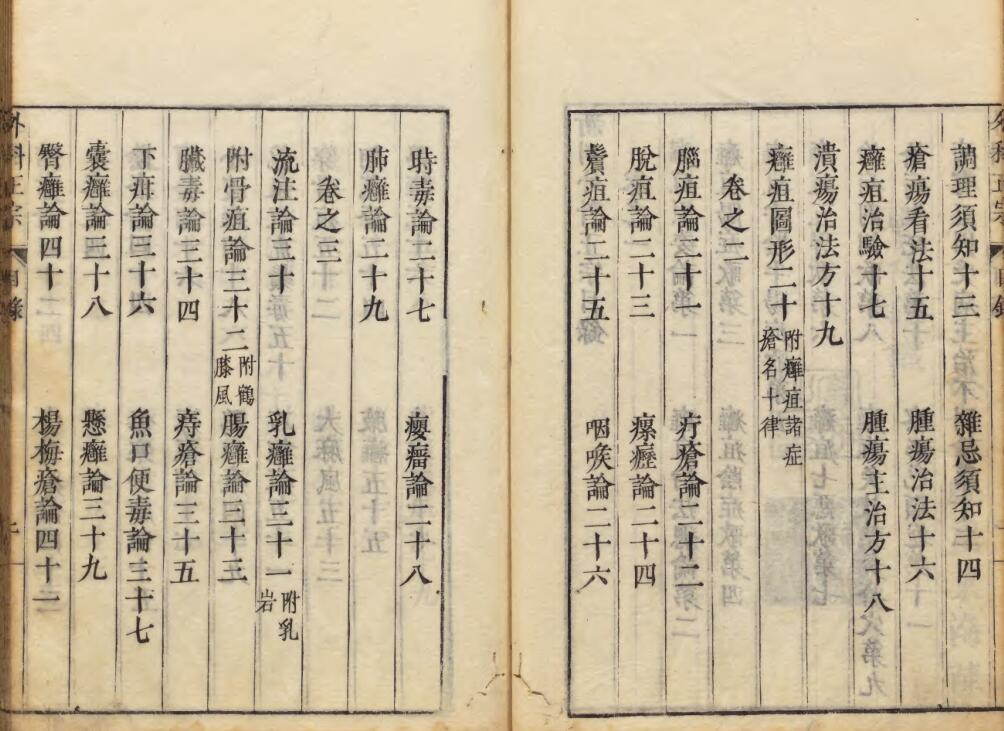 調理須知十三　雜忌須知十四
瘡瘍看法十五　腫瘍治法十六
癰疽治驗十七　腫瘍主治方十八
潰瘍治法方十九
癰疽圖形二十　附癰疽諸症瘡名十律
卷之二
腦疽論二十一　疔瘡論二十二
脫疽論二十三　瘰癧論二十四
鬢疽論二十五　咽喉論二十六
時毒論二十七　瘿瘤論二十八
肺癰論二十九
卷之三
流注論三十　乳癰論三十一　附乳岩
附骨疽論三十二　附鶴膝風　腸癰論三十三
臟毒論三十四　痔瘡論三十五
下疳論三十六　魚口便毒論三十七
囊癰論三十八　懸癰論三十九
臀癰論四十　楊梅瘡論四十一
外科正宗　目錄